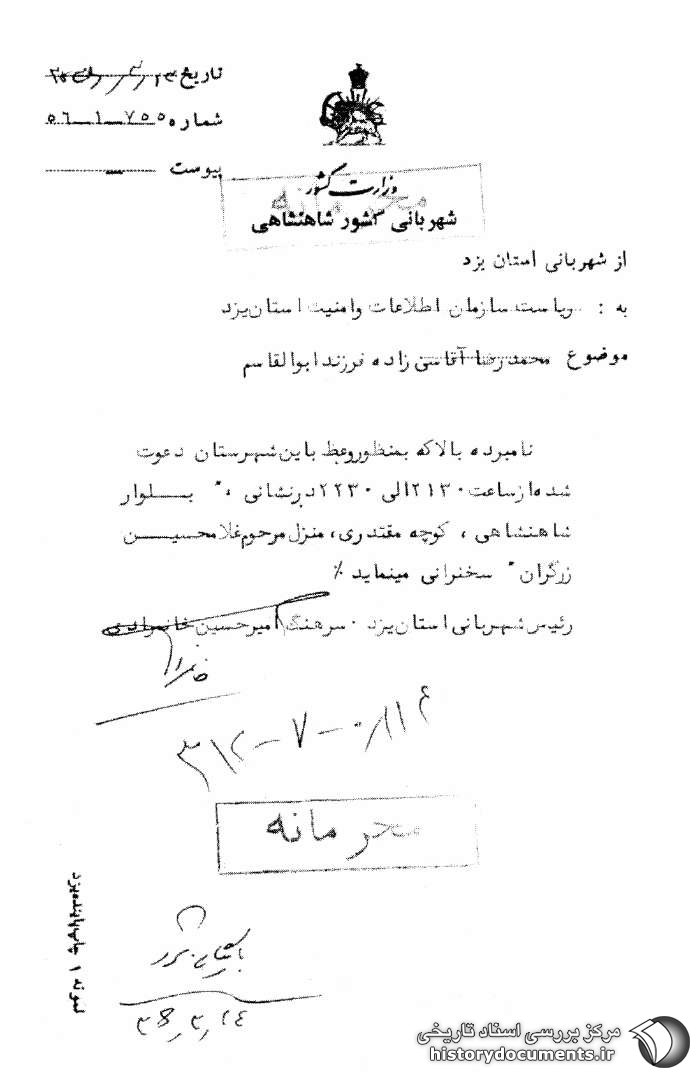 تاریخ
شماره ٥٦-١-٧٥٥
پیوست
وزارت کشور
محرمانه
شهربانی کشور شاهنشاهی
از شهربانی استان یزد
به : ریاست سازمان اطلاعات وامنیت استان یزد
موضوع محمدرضا آقاسی زاده فرزند ابوالقاسم
نامبرده بالاکه بمنظور وعظ باین شهرستان دعوت
شده از ساعت ٢١٣٠ الی ٢٢٣٠ در نشانی ، " بلوار
شاهنشاهی ، کوچه مقتدری، منزل مرحوم غلامحسین
زرگران " سخنرانی مینماید ٪
رئیس شهربانی استان یزد . سرهنگ امیرحسین خانمرادی
محرمانه
نمونه ١
مرکز بررسی اسناد تاریخی
historydocuments.ir